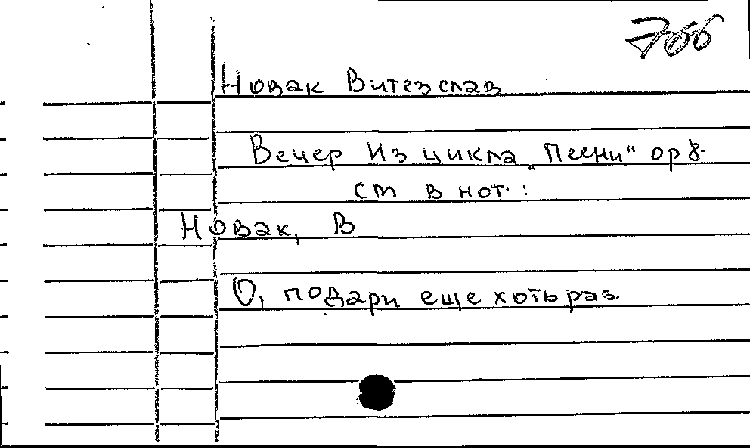 766
Новак Витезслав
Вечер Из цикла "Песни" op 8.
см в нот.:
Новак, В
О, подари еще хоть раз